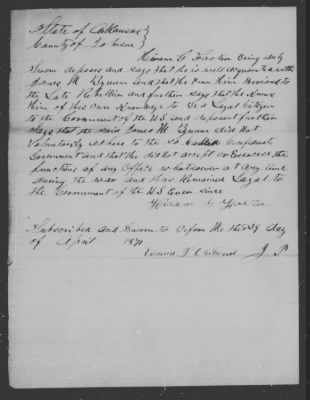 State of Arkansas }
County of
Hiram G                 Being duly
Sworn deposes and says that he is well acquainted with
James M              and that he            Him Previous to
the Late Rebellion and further says that he Knows
Him of His own Knowledge to be a Loyal Citizen
to the Government of the U.S and deponent further
Says that the said James M            did Not
Voluntarily adhere to the so called Confederate
Government and that he did Not accept or Exercise the
functions of any Office whatsoever at any time
during the War and Has Remained Loyal to
the Government of the U.S Ever since
Hiram G
Subscribed and Sworn to before Me this      day
of April 1871
J P